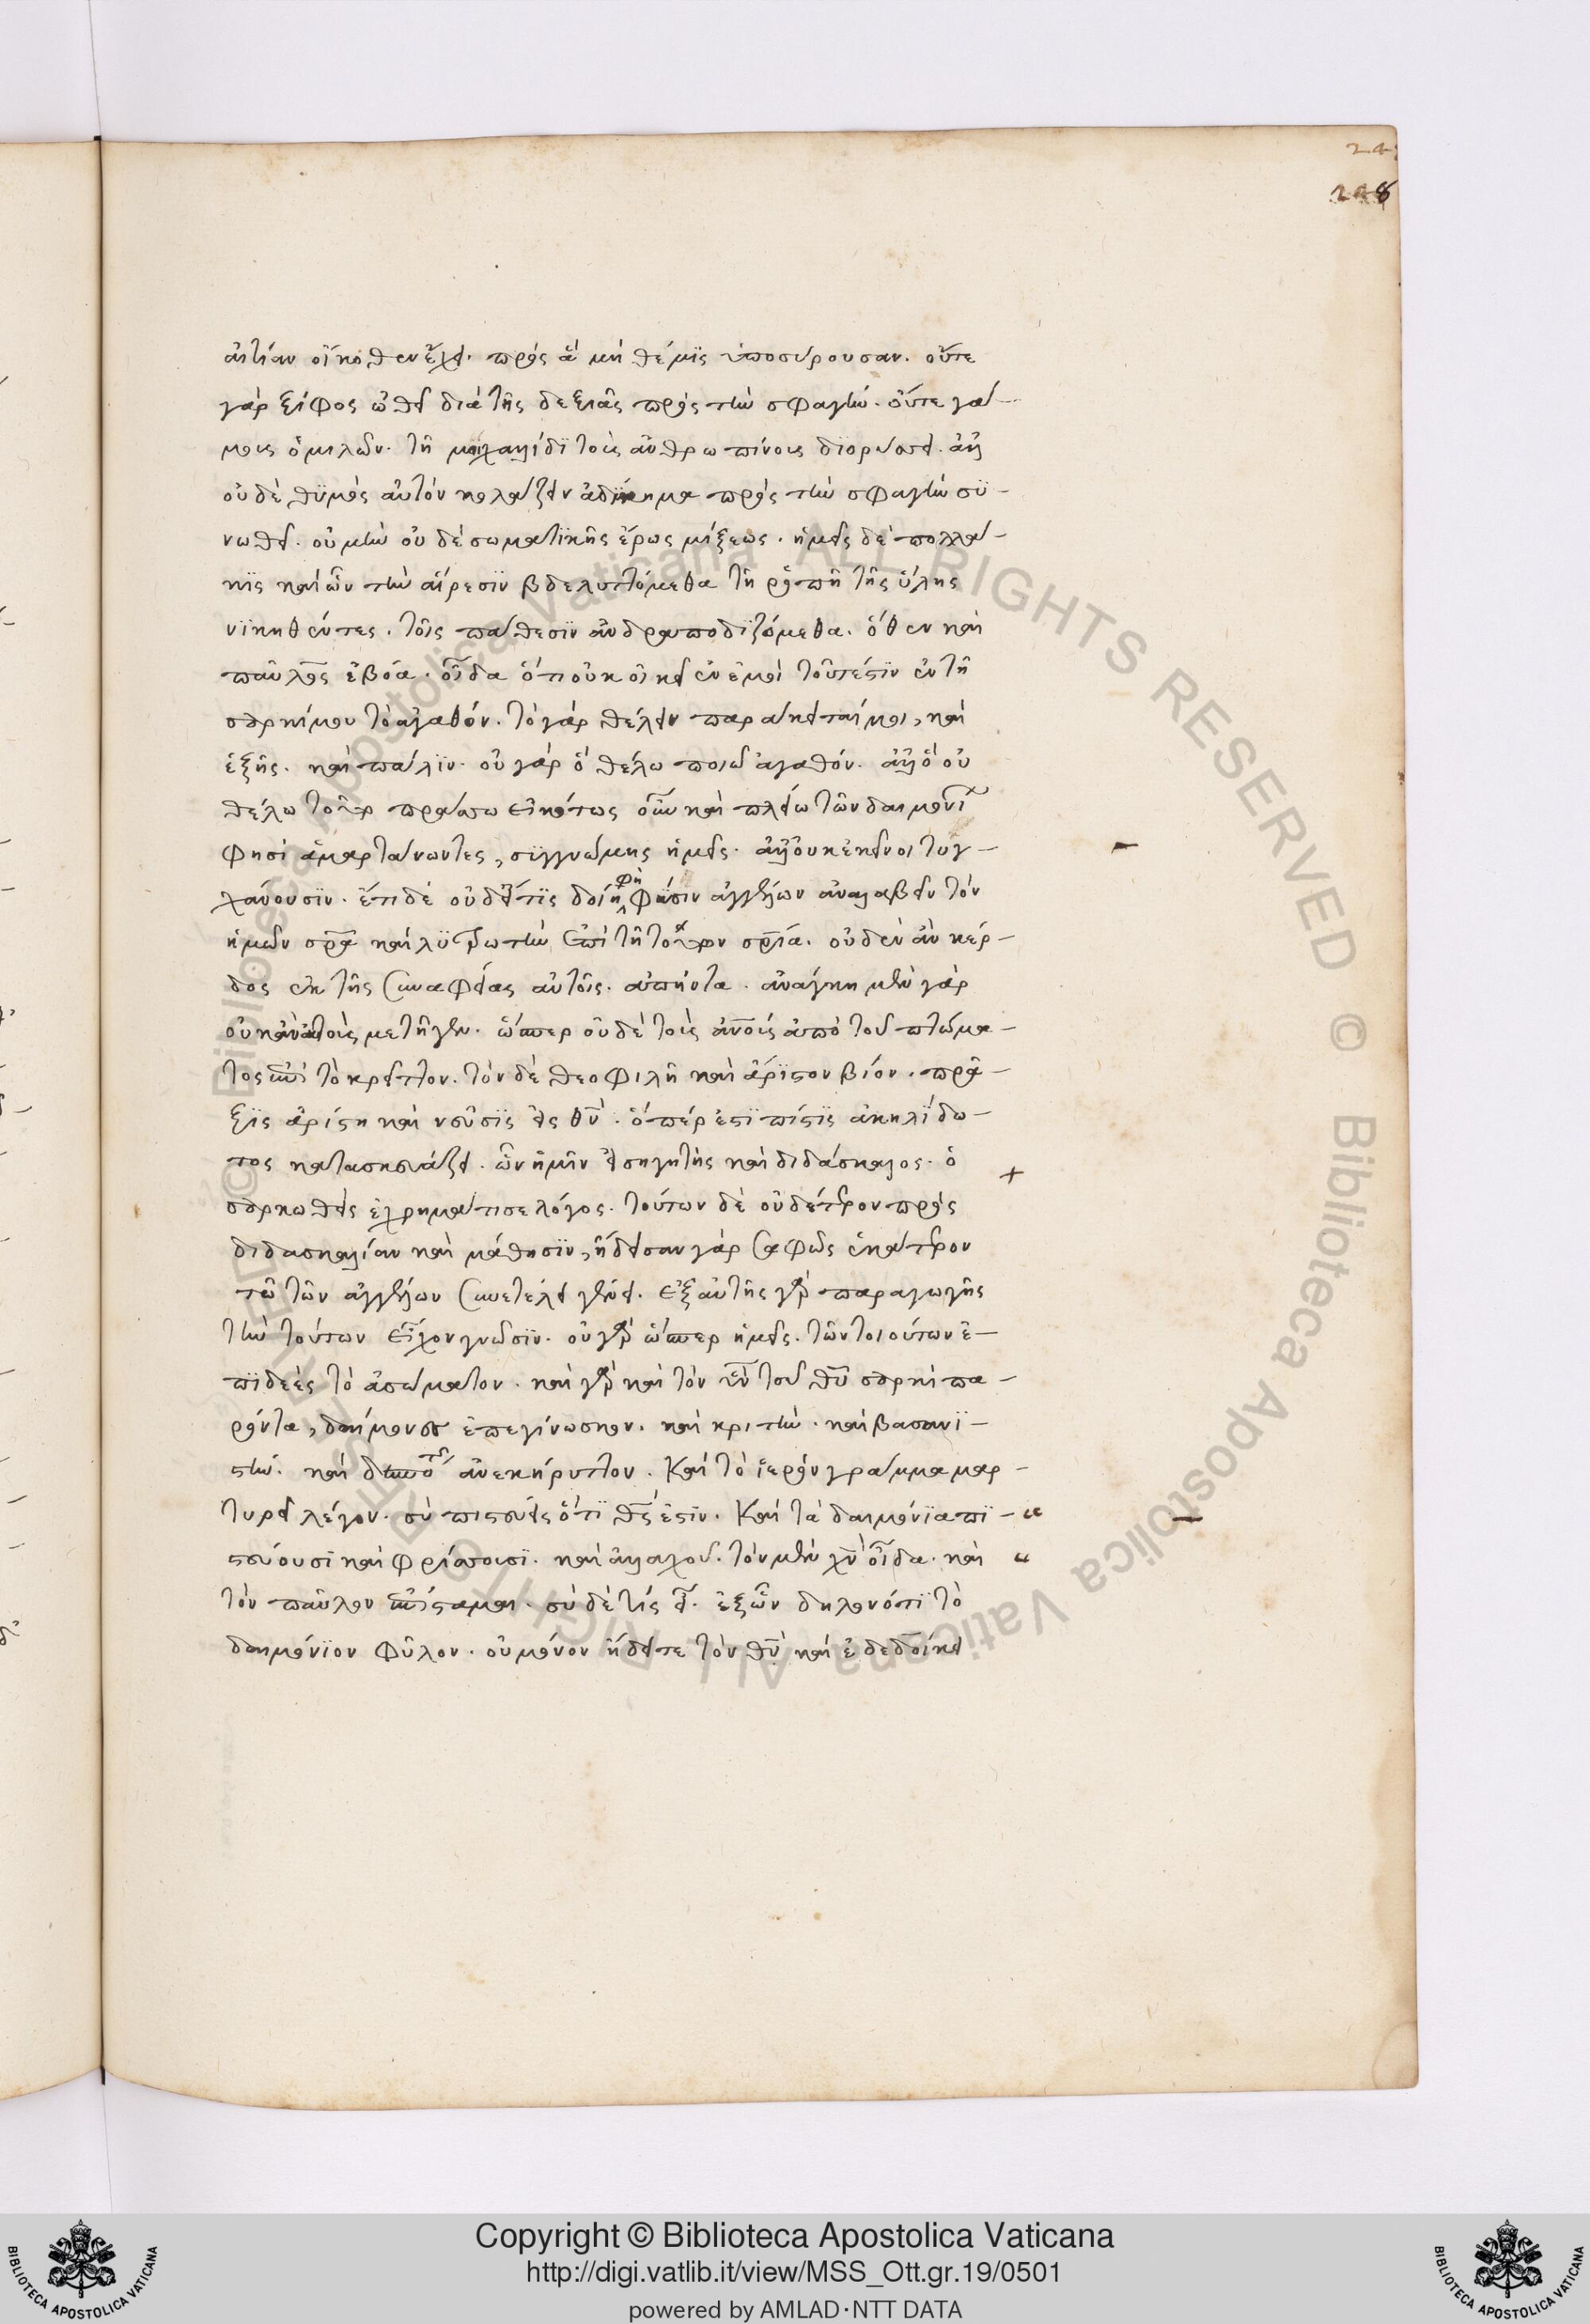 24
248
αἰτίαν οἴκοθεν ἕλχει. πρὸς ἃ μὴ θέμϊς ὑποσύρουσαν. οὔτε
γὰρ ξίφος ὠθεῖ διὰ τῆς δεξιᾶς πρὸς τὴν σφαγὴν. οὔτε γά-
μοις ὁμιλῶν. τῆ μοιχαλίδϊ τοῖς ἀνθρωπίνοις διορύσσει. ἀλλ
οὐδὲ θϋμὸς αὐτὸν κολάζειν ἀδίκημα πρὸς τὴν σφαγὴν σϋ-
νωθεῖ. οὐ μὴν οὐδὲ σωματϊκῆς ἔρως μίξεως. ἡμεῖς δὲ πολλά-
κϊς καὶ ὧν τὴν αἵρεσϊν βδελυττόμεθα τῆ ῥοπῆ τῆς ὕλης
νϊκηθέντες. τοῖς πάθεσϊν ἀνδραποδϊζόμεθα. ὅθεν καὶ
παῦλος ἐβόα. οἶδα ὅτι οὐκ οἰκεῖ ἐν ἐμοὶ τοῦτέστϊν ἐν τῆ
σαρκί μου τὸ ἀγαθόν. τὸ γὰρ θέλειν παράκειταί μοι, καὶ
ἑξῆς. καὶ πάλϊν. οὐ γὰρ ὃ θέλω ποιῶ ἀγαθόν. ἀλλ ὃ οὐ
θέλω τοῦτο πράττω εἰκότως οὖν καὶ πλείω τῶν δαιμονί
φησὶ ἁμαρτάνωντες, σϋγγνώμης ἡμεῖς. ἀλλ οὐκ ἐκεῖνοι τυγ-
χάνουσϊν. ἔτι δὲ οὐδ εἴ τϊς δοίη φὴ φύσιν ἀγγέλων ἀναλαβεῖν τὸν
ἡμῶν σρα καὶ λϋτρωτὴν ἐπὶ τῆ τούτων σρία. οὐδὲν ἂν κέρ-
δος ἐκ τῆς συναφείας αὐτοῖς. ἀπήντα. ἀνάγκη μὲν γὰρ
οὐκ ἂν αὐτοὺς μετῆγεν. ὥσπερ οὐδὲ τοὺς ἀνους ἀπὸ τοῦ πτώμα-
τος ἐπὶ τὸ κρεῖττον. τὸν δὲ θεοφιλῆ καὶ ἄρϊστον βίον. πρᾶ-
ξϊς ἀρίστη καὶ νεῦσϊς εἰς θν. ὅπέρ ἐστϊ πίστϊς ἀκηλϊδω-
τος κατασκευάζει. ὧν ἡμῖν εἰσηγητὴς καὶ διδάσκαλος. ὁ
σαρκωθεὶς ἐχρημάτισε λόγος. τούτων δὲ οὐδέτερον πρὸς
διδασκαλίαν καὶ μάθησϊν, ἤδεισαν γὰρ σαφῶς ἑκάτερον
τῶ τῶν ἀγγέλων συνετέλει γένει. ἐξ αὐτῆς γὰρ παραγωγῆς
τὴν τούτων εἶχον γνῶσϊν. οὐ γὰρ ὥσπερ ἡμεῖς. τῶν τοιούτων ἐ-
πϊδεὲς τὸ ἀσώματον. καὶ γὰρ καὶ τὸν υν τοῦ θυ σαρκὶ πα-
ρόντα, δαίμονες ἐπεγίνωσκον. καὶ κριτὴν. καὶ βασανϊ-
στὴν. καὶ δεσπότην ἀνεκήρυττον. Καὶ τὸ ἱερὸν γράμμα μαρ-
τυρεῖ λέγον. σὺ πιστεύεις ὅτϊ θς ἐστϊν. Καὶ τὰ δαιμόνϊα πϊ-
στεύουσϊ καὶ φρίττουσϊ. καὶ ἀλλαχοῦ. τὸν μὲν χν οἶδα. καὶ
τὸν παῦλον ἐπίσταμαι. σὺ δὲ τίς εἶ. ἐξ ὧν δηλονότϊ τὸ
δαιμόνϊον φῦλον. οὐ μόνον ἤδει τε τὸν θν καὶ ἐδεδοίκει
Copyright © Biblioteca Apostolica Vaticana
http://digi.vatlib.it/view/MSS_Ott.gr.19/0501
powered by AMLAD·NTT DATA